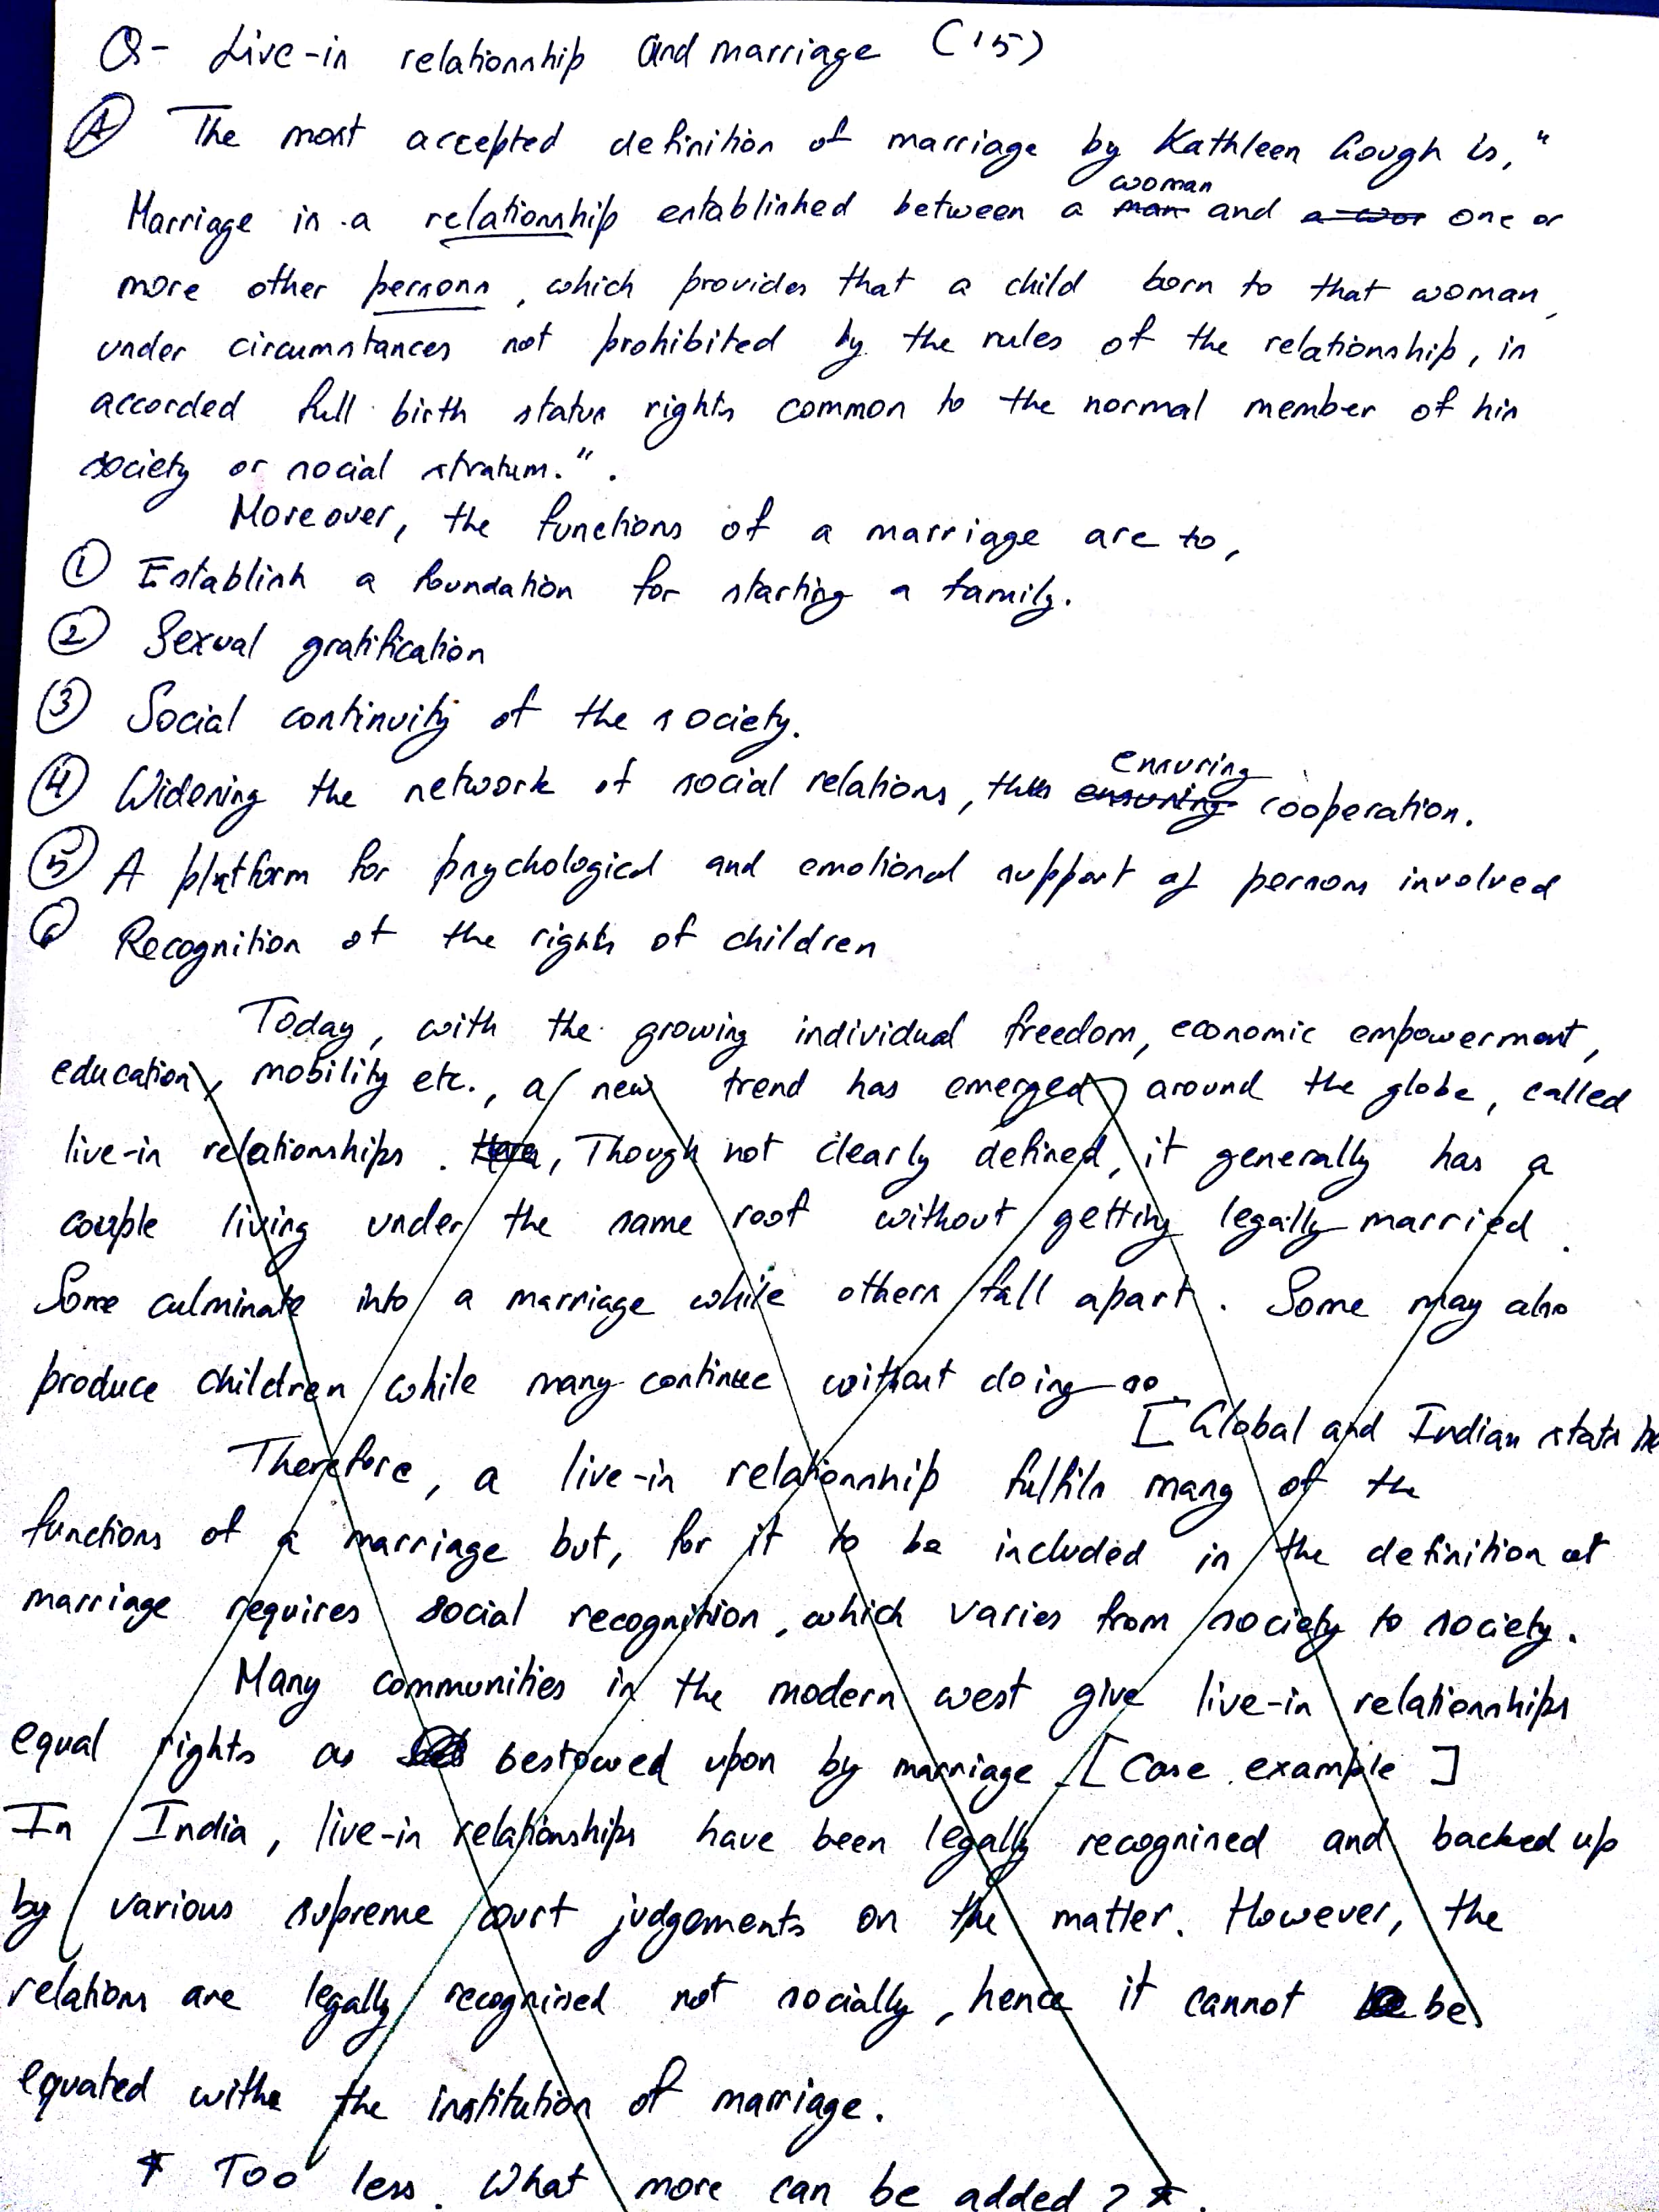 Q- Live-in relationship and marriage (15)
A The most accepted definition of marriage by Kathleen Gough is, "
woman
Marriage is a relationship established between a man and a wor one or
more other persons, which provides that a child born to that woman,
under circumstances not prohibited by the rules of the relationship, is
accorded full birth status rights common to the normal member of his
society or social stratum.".
Moreover, the functions of a marriage are to,
1 Establish a foundation for starting a family.
2 Sexual gratification
3 Social continuity of the society.
ensuring
4 Widening the network of social relations, thus ensuring cooperation.
5 A platform for psychological and emotional support of persons involved
6 Recognition of the rights of children
Today, with the growing individual freedom, economic empowerment,
education, mobility etc., a new trend has emerged around the globe, called
live-in relationships. , Though not clearly defined, it generally has a
couple living under the same roof without getting legally married.
Some culminate into a marriage while others fall apart. Some may also
produce children while many continue without doing so.
[Global and Indian stats
Therefore, a live-in relationship fulfils many of the
functions of a marriage but, for it to be included in the definition of
marriage requires social recognition, which varies from society to society.
Many communities in the modern west give live-in relationships
equal rights as bestowed upon by marriage [Case example]
In India, live-in relationships have been legally recognised and backed up
by various supreme court judgements on the matter. However, the
relations are legally recognised not socially, hence it cannot be
equated with the institution of marriage.
* Too less. What more can be added? *.